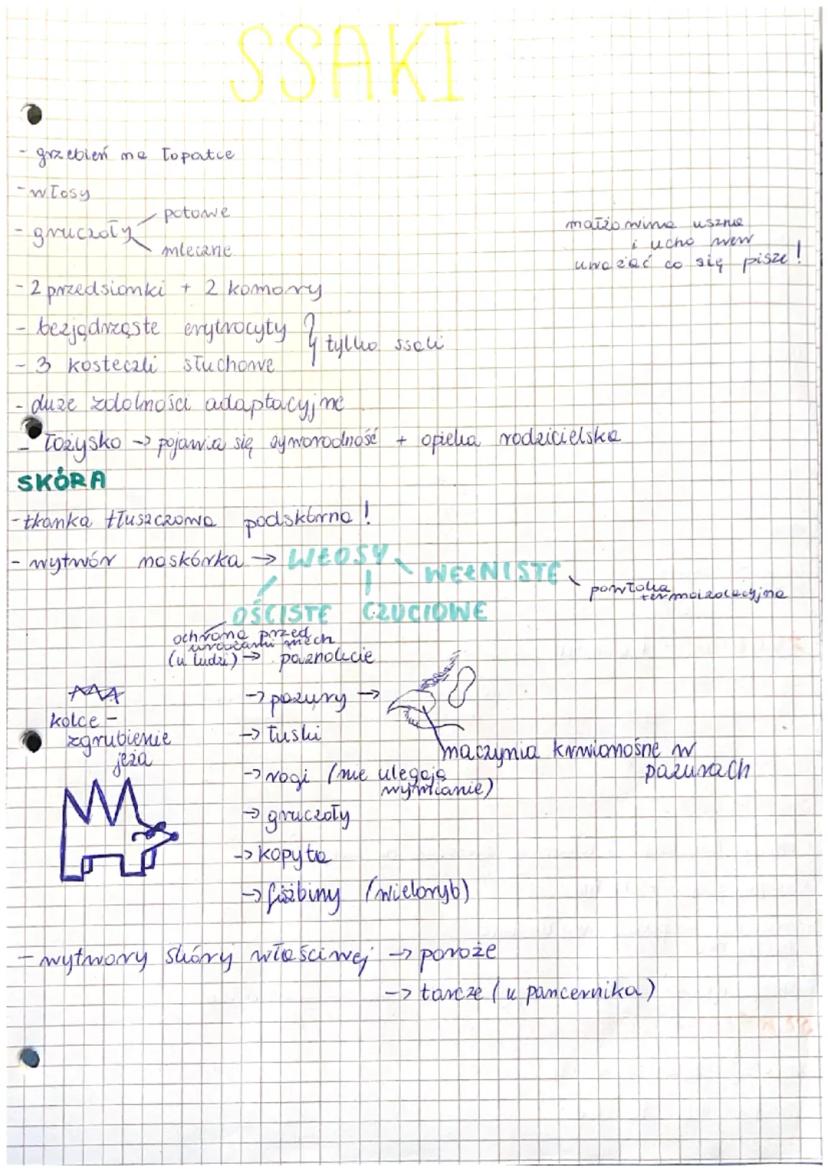 SSAKI
- grzebień na łopatce
- włosy
- gruczoły
potowe
mleczne
małżowina uszna
i ucho wew
uważać co się pisze!
- 2 przedsionki + 2 komory
- bezjądrzaste erytrocyty
- 3 kosteczki słuchowe
} tylko ssaki
- duże zdolności adaptacyjne
- łożysko -> pojawia się żyworodność + opieka rodzicielska
SKÓRA
- tkanka tłuszczowa podskórna!
- wytwór naskórka -> WŁOSY
WEŁNISTE
powłoka termoizolacyjna
OŚCISTE CZUCIOWE
ochrona przed
urazami mech
(u ludzi) -> paznokcie
-> pazury ->
kolce -
zgrubienie
jeża
-> łuski
naczynia krwionośne w
pazurach
-> rogi (nie ulegają
wymianie)
-> gruczoły
-> kopyta
-> fiszbiny (wieloryb)
- wytwory skóry właściwej -> poroże
-> tarcze (u pancernika)